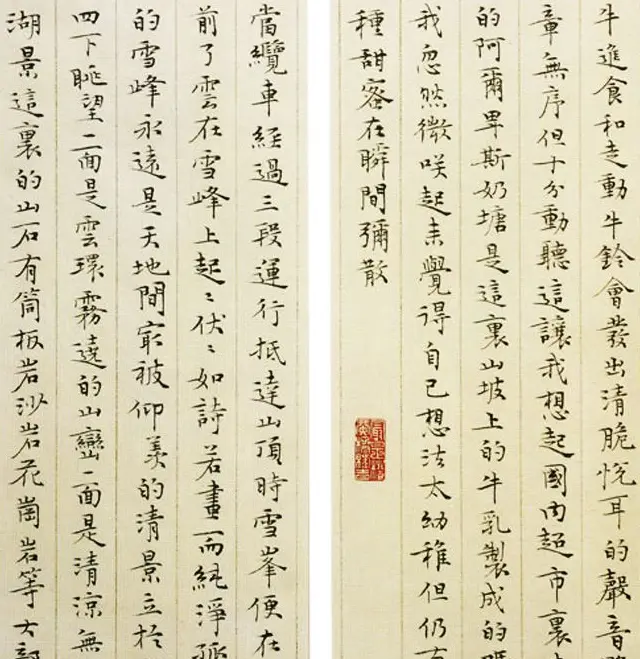 牛進食和走動牛鈴會發出清脆悅耳的聲音
章無序但十分動聽這讓我想起國内超市裏
的阿爾卑斯奶塘是這裏山坡上的牛乳製成的嗎
我忽然微咲起来覺得自己想法太幼稚但仍有
種甜蜜在瞬間彌散
當纜車經過三段運行抵達山頂時雪峯便在
前了雲在雪峰上起〻伏〻如詩若畫而純淨孤
的雪峰永遠是天地間冣被仰羡的清景立於
四下眺望二面是雲環霧遶的山巒二面是清涼無
湖景這裏的山石有筒板岩沙岩花崗岩等大部